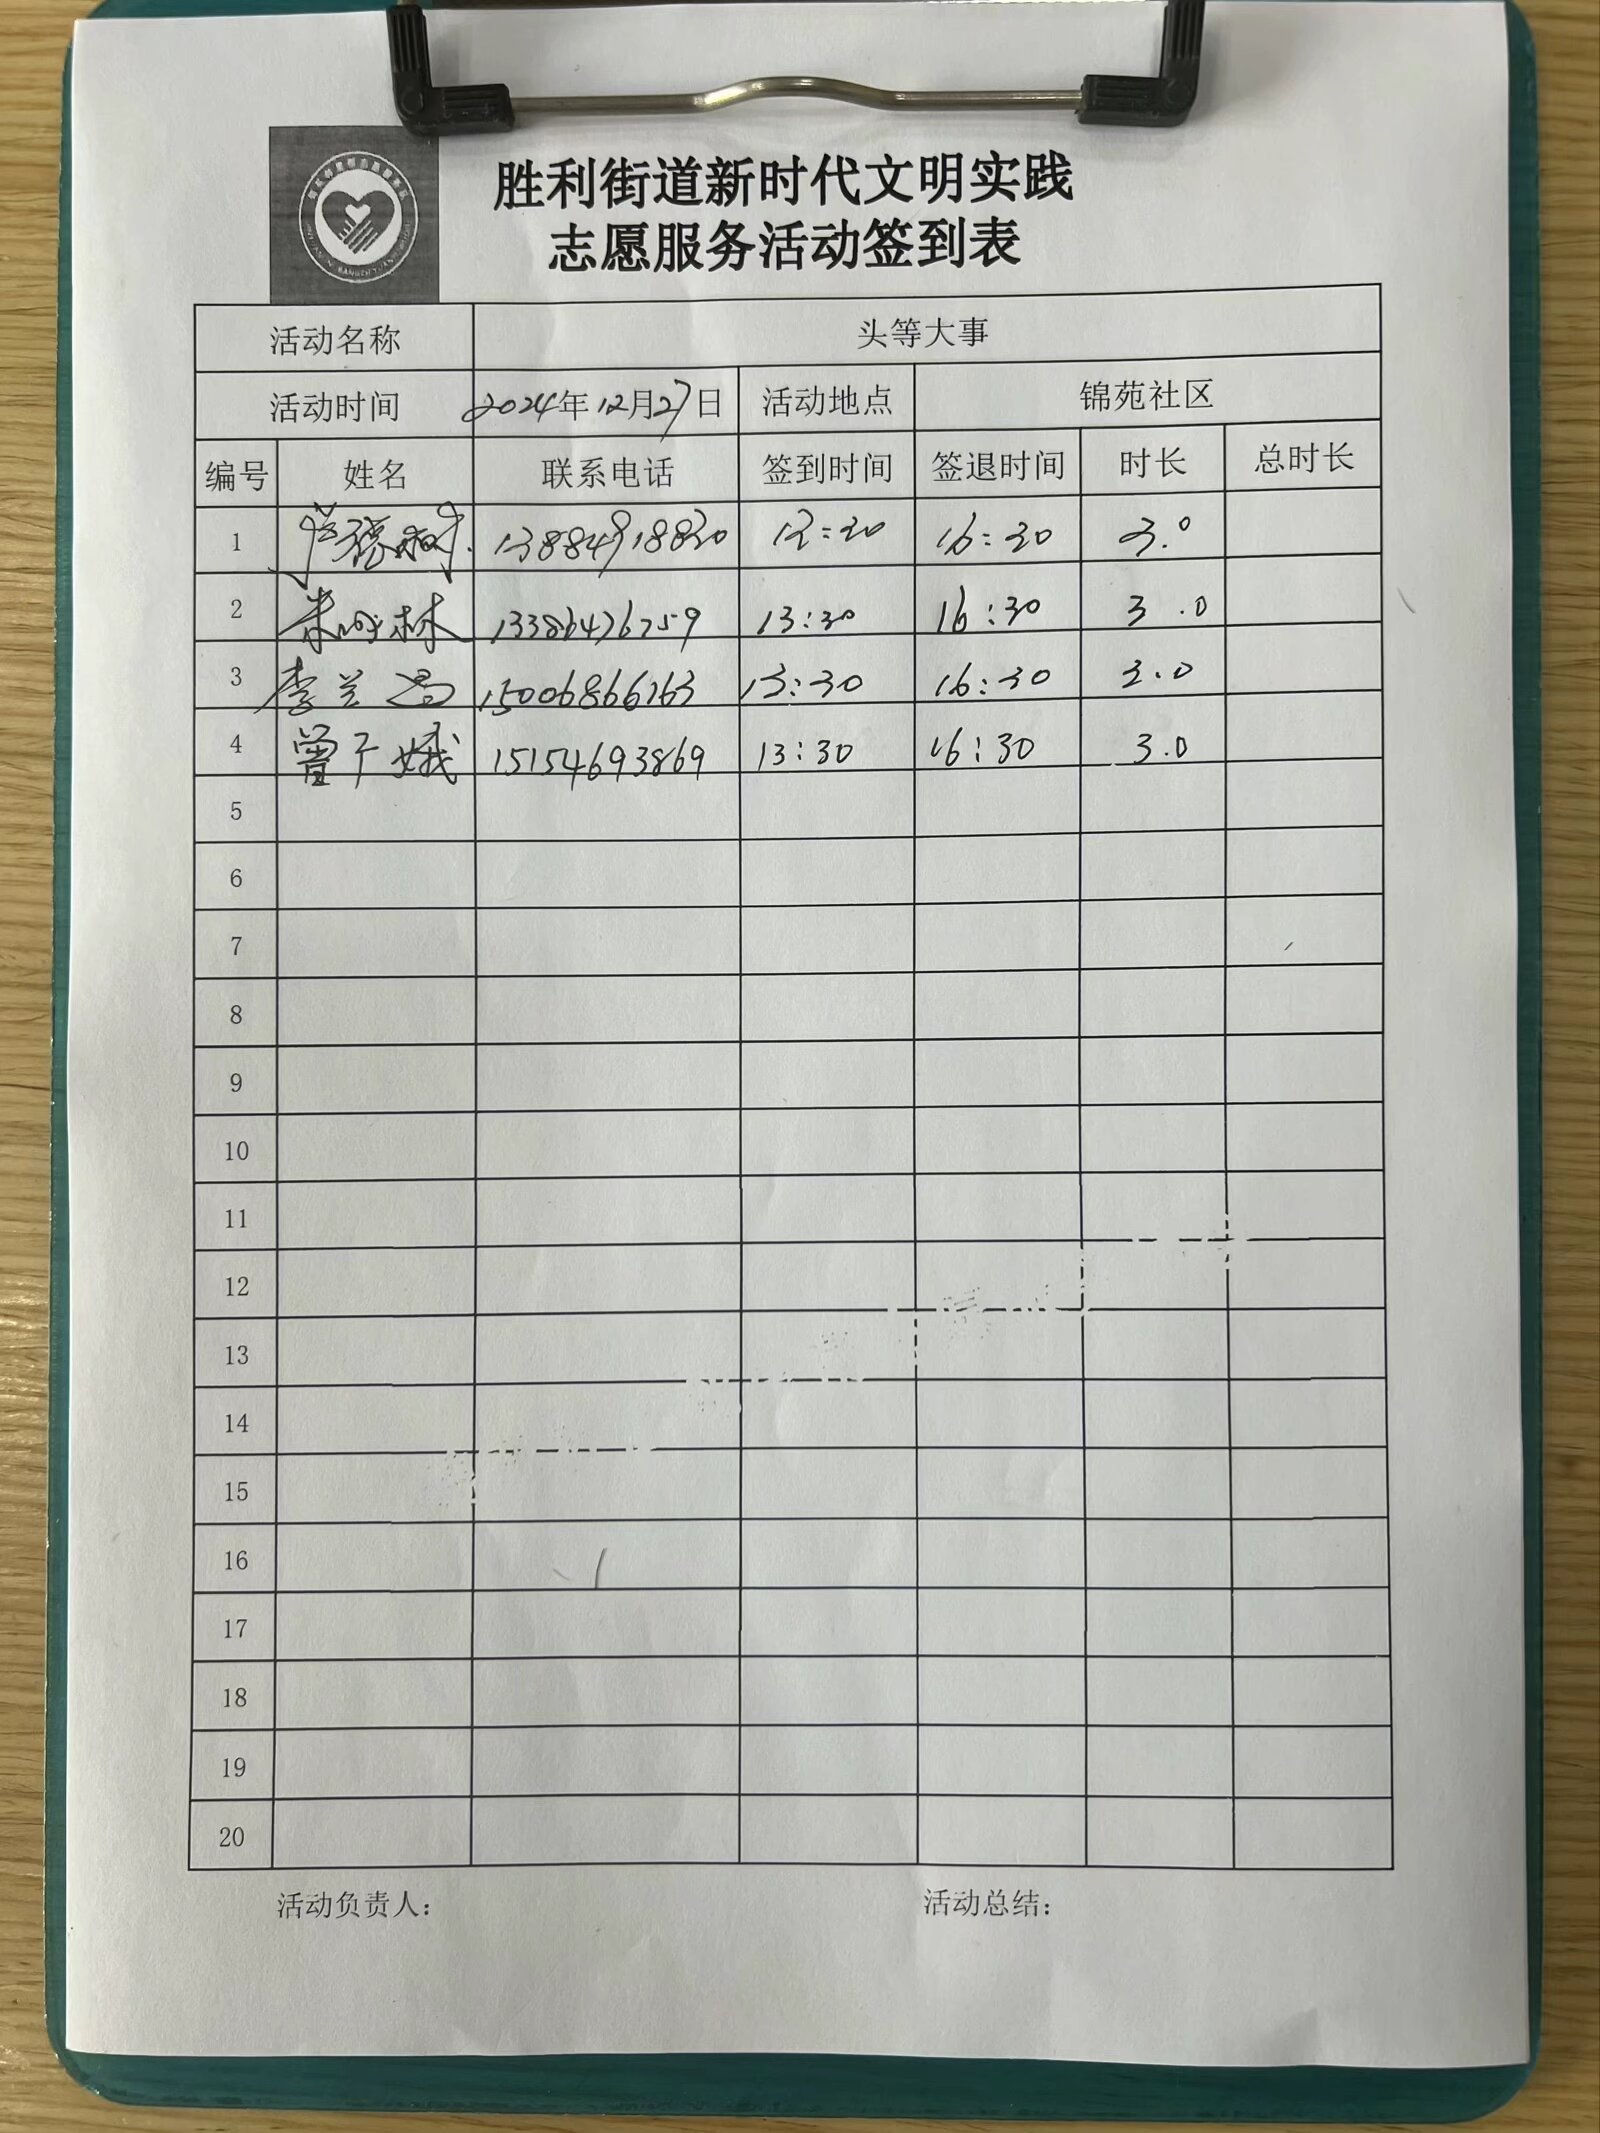 胜利街道新时代文明实践
志愿服务活动签到表
活动名称 头等大事
活动时间 2024年12月27日 活动地点 锦苑社区
编号 姓名 联系电话 签到时间 签退时间 时长 总时长
1 13884918830 16:30 3.0
2 林 13386476759 13:30 16:30 3.0
3 李兰 15006866763 13:30 16:30 3.0
4 曾广娥 15154693869 13:30 16:30 3.0
5
6
7
8
9
10
11
12
13
14
15
16
17
18
19
20
活动负责人： 活动总结：